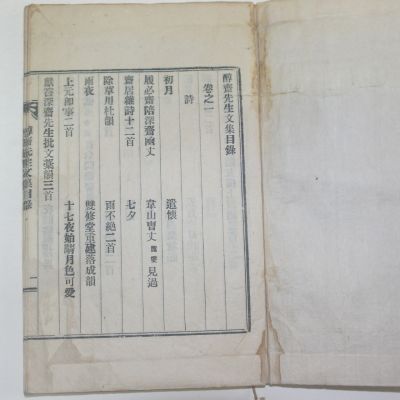 醇齋先生文集目錄
卷之一
詩
初月 遣懷
履必齋陪深齋函丈 韋山曺丈 見過
齋居雜詩十二首 七夕
除草用杜韻 雨不絶二首
雨夜 雙修堂重建落成韻
上元卽事二首 十七夜始晴月色可愛
獻答深齋先生批文藁韻三首
醇齋先生文集目錄
一